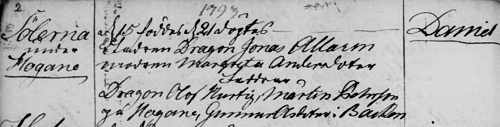 2.
1793
Sölerna
under
Hogane
d. 15 föddes d. 21 döptes
fadren Dragon Jonas Allarm
modren Margreta Andersdoter
faddrar
Dragon Olof Hurtig, Martin Persson
på Hogane, Gunnur Olsdoter i Backen
Daniel